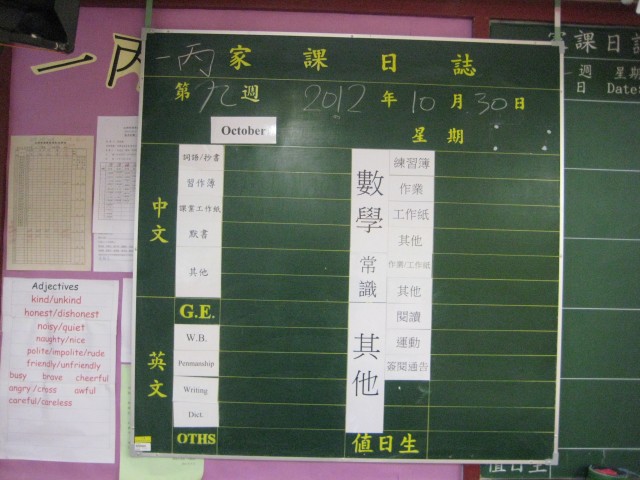 一丙
一丙 家課日誌
第九週 2012年10月30日
October
星期
中文
詞語/抄書
習作簿
課堂工作紙
默書
其他
英文
G.E.
W.B.
Penmanship
Writing
Dict.
OTHS
數學
練習簿
作業
工作紙
其他
常識
作業/工作紙
其他
其他
閱讀
運動
簽閱通告
值日生
Adjectives
kind/unkind
honest/dishonest
noisy/quiet
naughty/nice
polite/impolite/rude
friendly/unfriendly
busy brave cheerful
angry/cross awful
careful/careless
家課日誌
週 星期
日 Date:
值日生